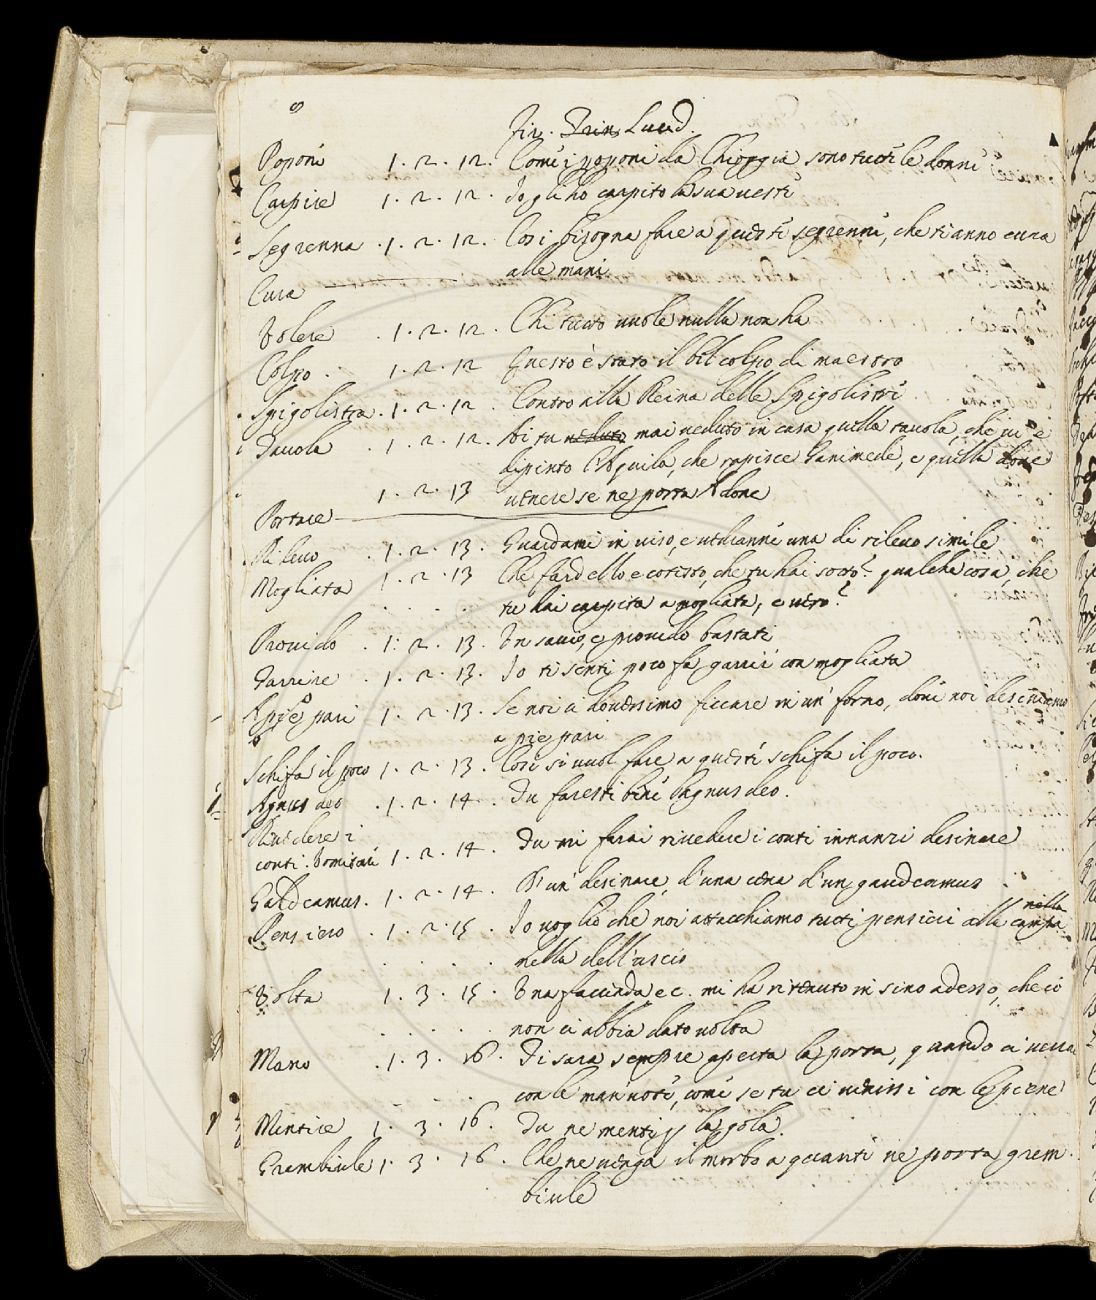 8
Fir. Trin. Lucid.
Poponi 1. 2. 12. Come i poponi da Chioggia sono tutte le donne
Carpire 1. 2. 12. Io gli ho carpito la sua veste
Segrenna . 1. 2. 12. Così bisogna fare a queste segrenne, che ti anno cura
alle mani
Cura
Volere . 1. 2. 12. Chi tutto vuole nulla non ha
Colpo . 1. 2. 12 Questo è stato il bel colpo di maestro
Spigolistra . 1. 2. 12 Contro alla Reina delle Spigolistre
Tavola . 1. 2. 12. Ai tu veduto mai veduto in casa quella tavola, che vi è
dipinto l'Aquila, che rapisce Ganimede, e quella dove
1. 2. 13 Venere se ne porta Adone
Portare
Rilevo . 1. 2. 13. Guardami in viso, e vedianne una di rilevo simile
Mogliata 1. 2. 13 Che fardello è cotesto, che tu hai sotto? qualche cosa, che
tu hai carpita a mogliata, e vero?
Provido . 1. 2. 13. Un savio, e provido bastati
Garrire . 1. 2. 13. Io ti senti poco fa garrir con mogliata
A piè pari 1. 2. 13. Se noi ci dovessimo ficcare in un forno, dove noi desiniamo
a piè pari
Schifa il poco 1. 2. 13. Così si vuol fare a questi schifa il poco.
Agnus deo . 1. 2. 14. Tu faresti bene Agnus deo.
Rivedere i
conti 1. 2. 14. Tu mi farai rivedere i conti innanzi desinare
Gaudeamus . 1. 2. 14. D'un desinare, d'una cena d'un gaudeamus
Pensiero . 1. 2. 15 . Io voglio che noi attacchiamo tutti pensieri alla campa
nella
nella dell'uscio
Volta 1. 3. 15. Una faccenda ec. mi ha ritenuto in sino adesso, che io
non ci abbia dato volta
Mano . 1. 3. 16. Ti sara sempre aperta la porta, quando ci verrai
con le man note, come se tu ci venissi con le piene
Mentire 1. 3. 16. Tu ne menti p la gola
Grembiule 1. 3. 16 . Che ne venga il morbo a quanti ne porta grem
biule